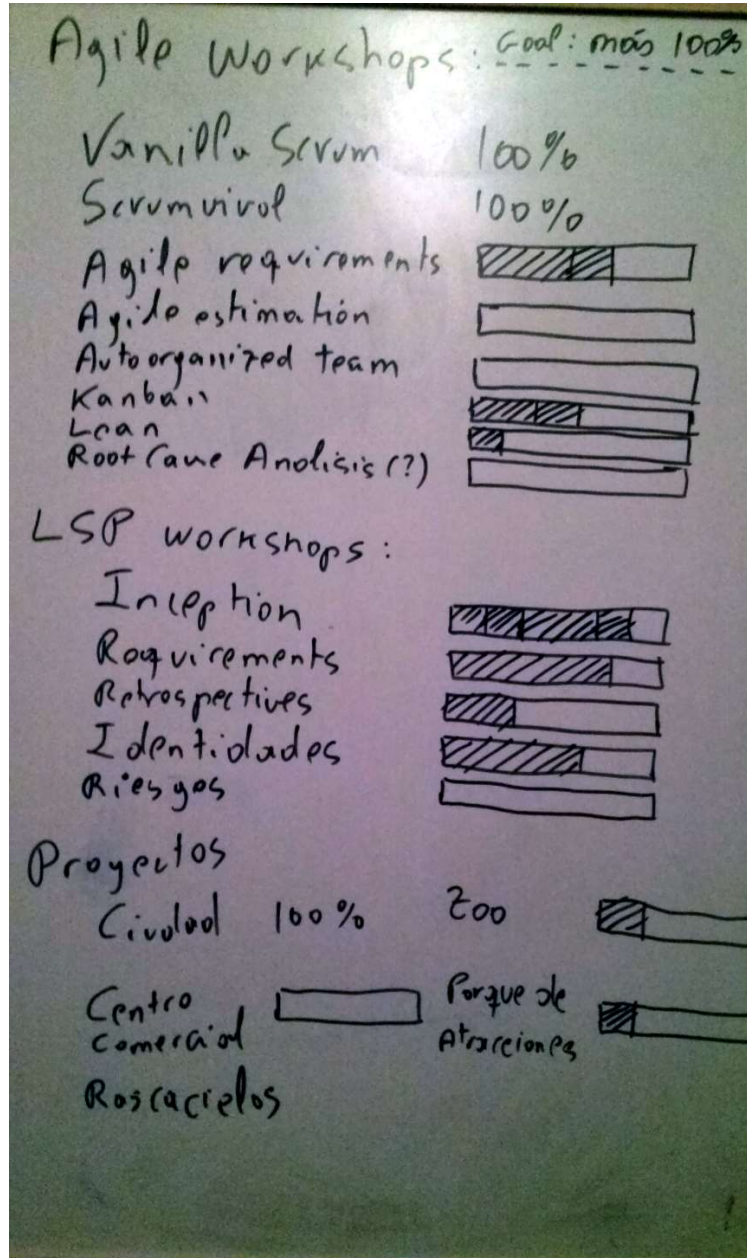 Agile Workshops: Goal: más 100%
Vanilla Scrum 100%
Scrumvival 100%
Agile requirements
Agile estimation
Autoorganized team
Kanban
Lean
Root Cause Analisis (?)
LSP workshops:
Inception
Requirements
Retrospectives
Identidades
Riesgos
Proyectos
Ciudad 100% Zoo
Centro Parque de
comercial Atracciones
Rascacielos